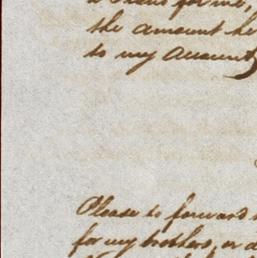 for me,
the amount he
to my Account
Please to forward
for my brothers, or